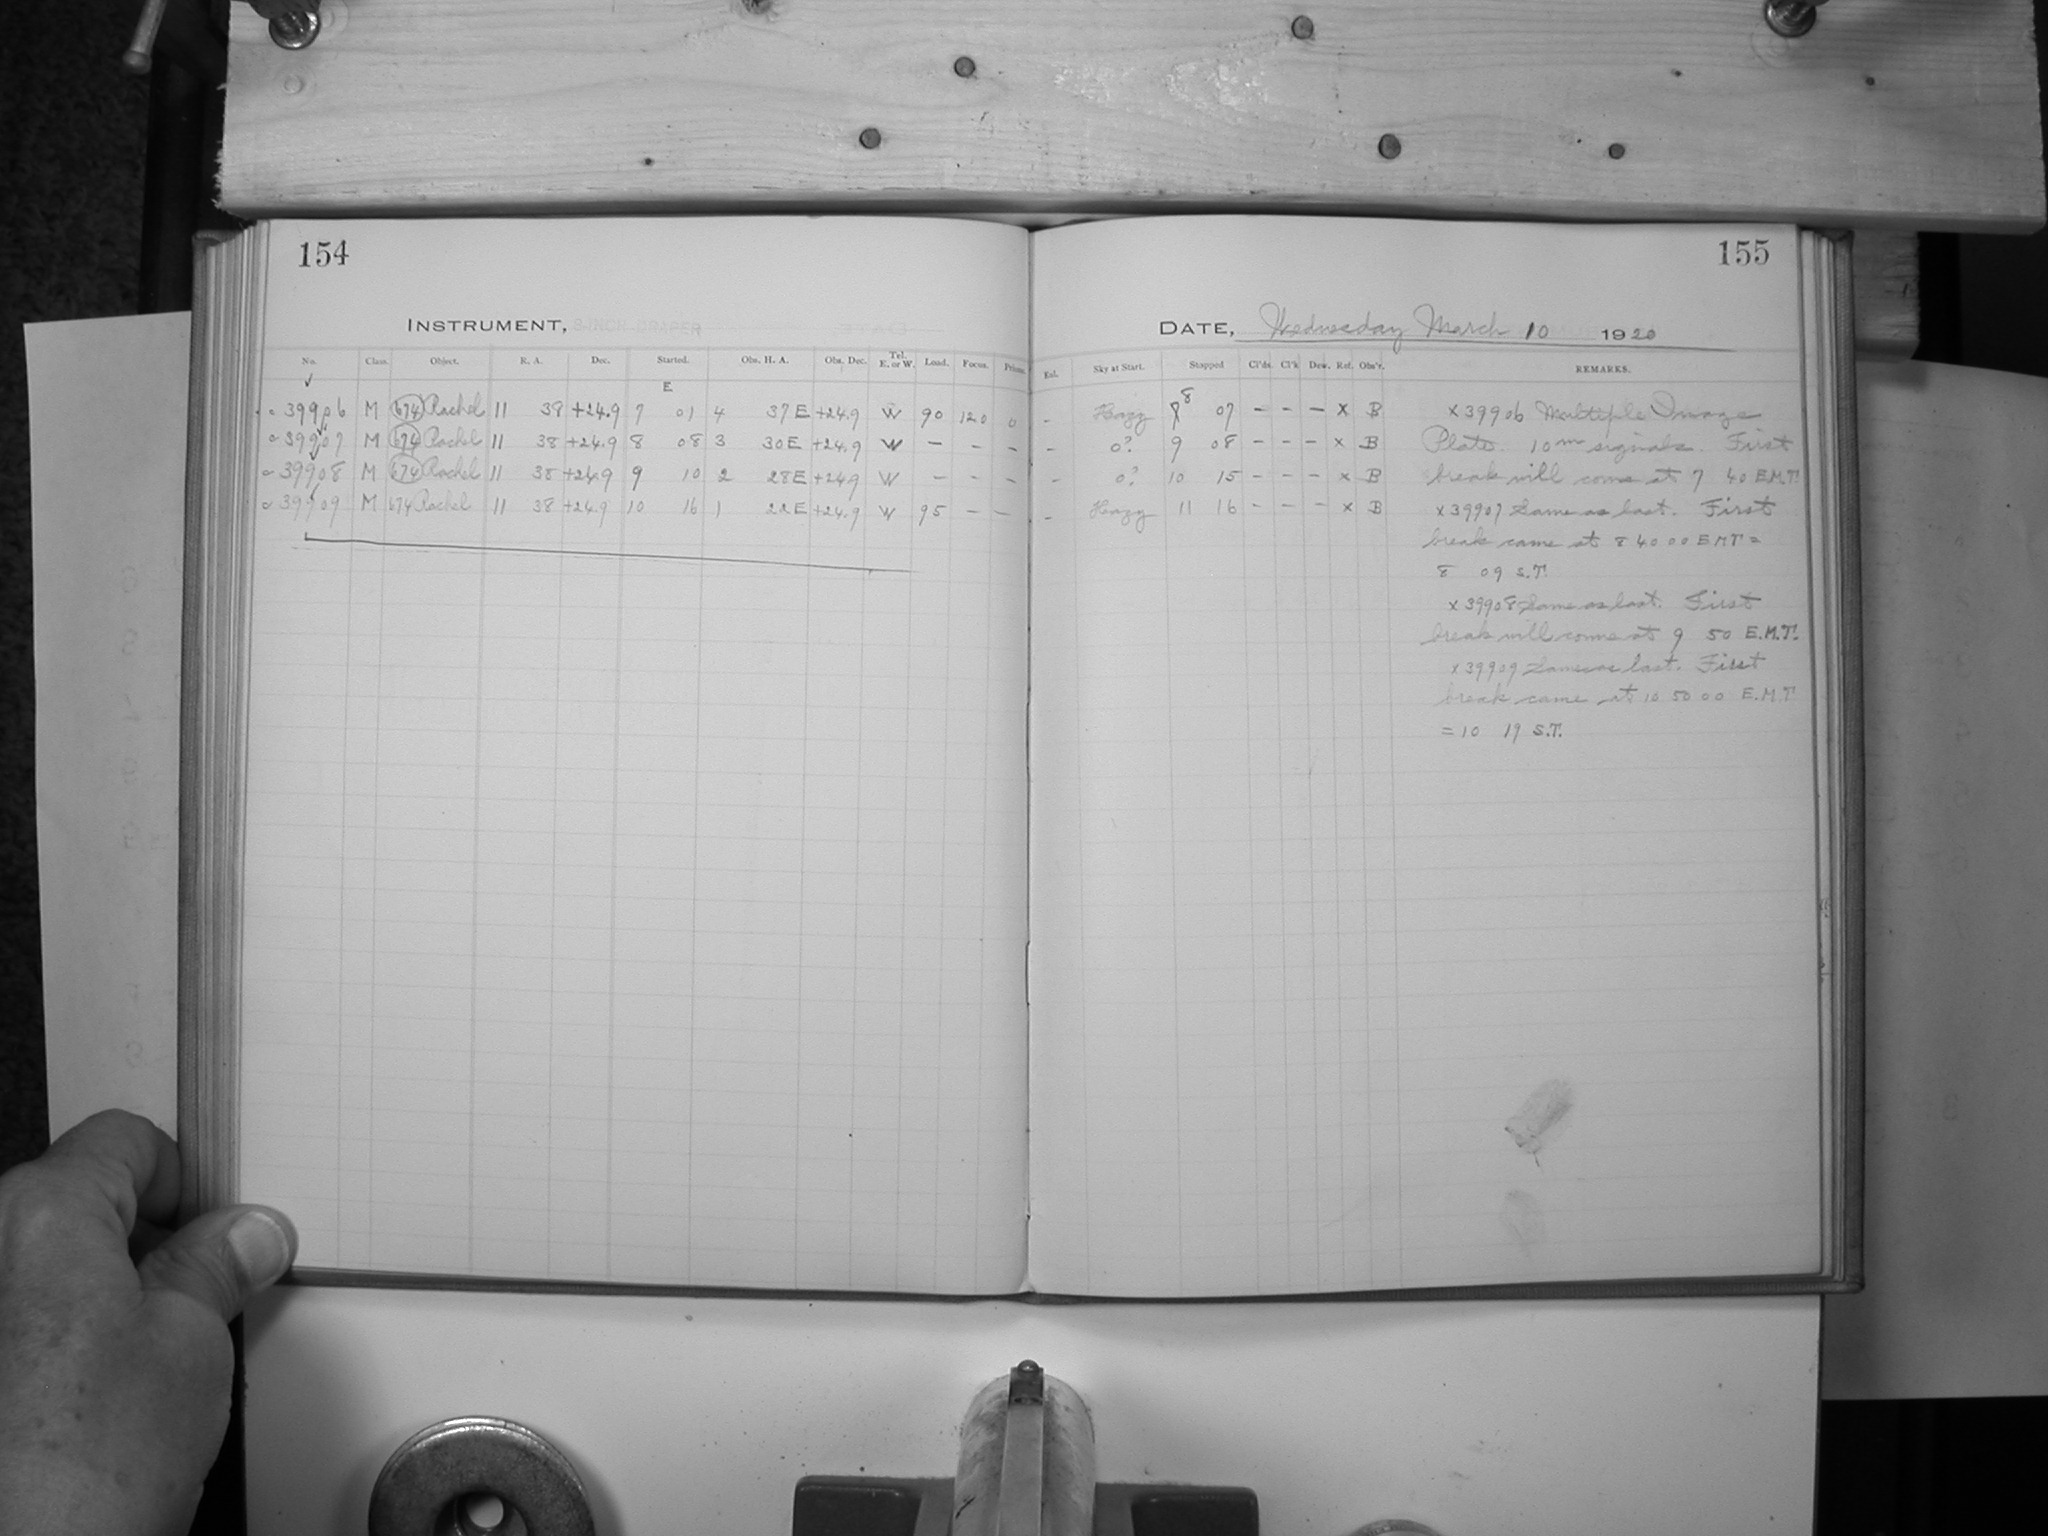 154
155
INSTRUMENT, 8-INCH DRAPER
DATE, Wednesday March 10 1920
No. Class. Object. R. A. Dec. Started. Obs. H. A. Obs. Dec. Tel. E. or W. Load. Focus. Prisms. Eal. Sky at Start. Stopped Cl'ds. Cl'k Dew. Ref. Obs'r. REMARKS.
E
39906 M 674 Rachel 11 38 +24.9 7 01 4 37 E +24.9 W 90 120 0 - Hazy 8 07 - - - x B
39907 M 674 Rachel 11 38 +24.9 8 08 3 30 E +24.9 W - - - - 0? 9 08 - - - x B
39908 M 674 Rachel 11 38 +24.9 9 10 2 28 E +24.9 W - - - - 0? 10 15 - - - x B
39909 M 674 Rachel 11 38 +24.9 10 16 1 22 E +24.9 W 95 - - - Hazy 11 16 - - - x B
x 39906 Multiple Image
Plate. 10m signals. First
break will come at 7 40 E.M.T.
x 39907 Same as last. First
break came at 8 40 00 E.M.T. =
8 09 S.T.
x 39908 Same as last. First
break will come at 9 50 E.M.T.
x 39909 Same as last. First
break came at 10 50 00 E.M.T
= 10 19 S.T.